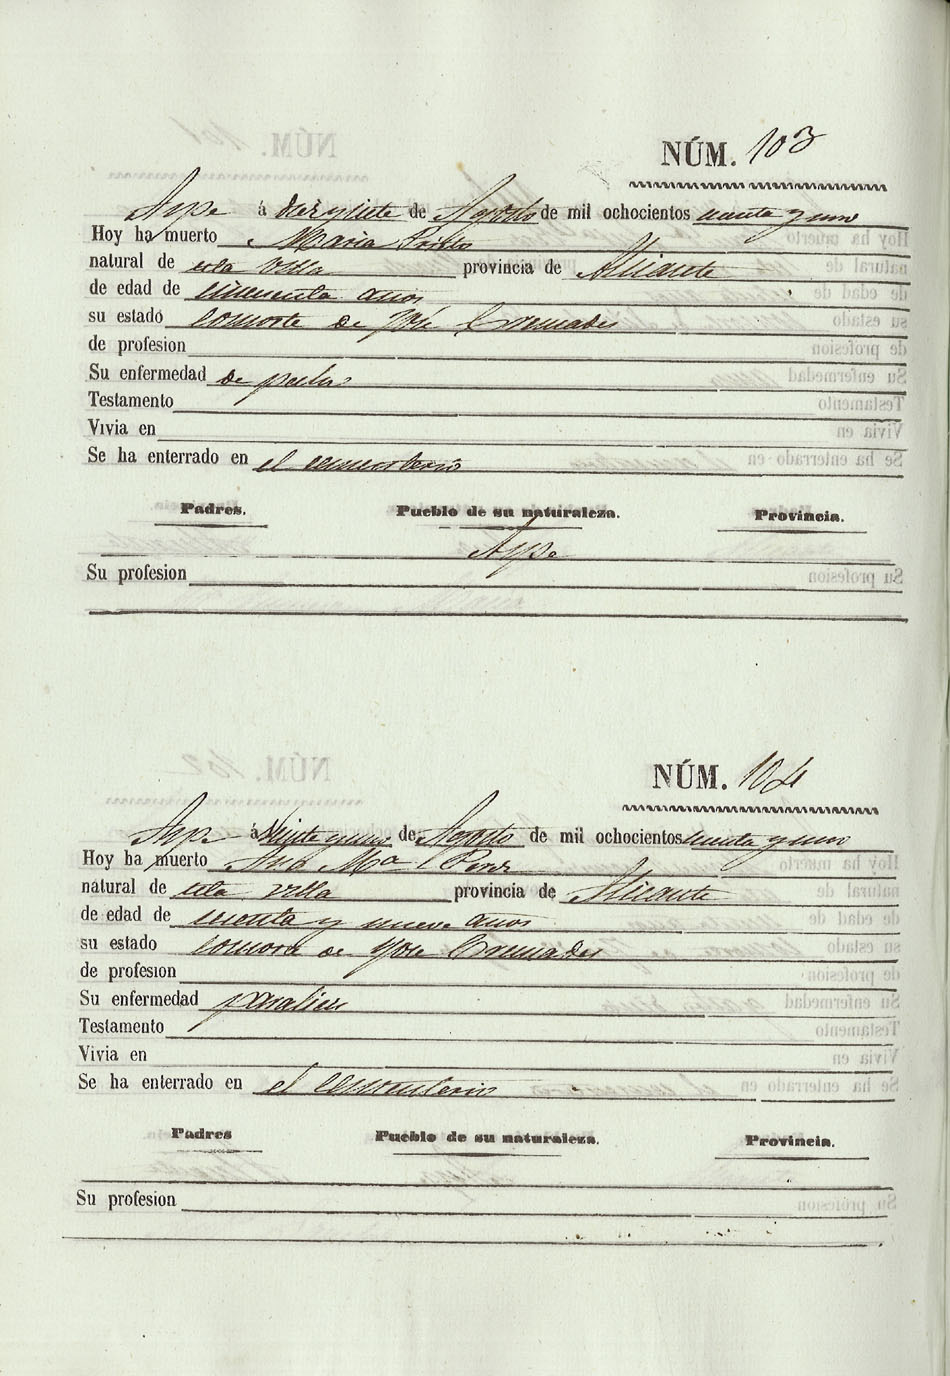 NÚM. 103
Aspe á diez y siete de Agosto de mil ochocientos cuarenta y uno
Hoy ha muerto Maria Prieto
natural de esta villa provincia de Alicante
de edad de cincuenta años
su estado consorte de José Cremades
de profesion
Su enfermedad de pecho
Testamento
Vivia en
Se ha enterrado en el cementerio
Padres. Pueblo de su naturaleza. Provincia.
Aspe
Su profesion
NÚM. 104
Aspe á Veinte y uno de Agosto de mil ochocientos cuarenta y uno
Hoy ha muerto Ana Mª Perez
natural de esta villa provincia de Alicante
de edad de y nueve años
su estado consorte de José Cremades
de profesion
Su enfermedad paralisis
Testamento
Vivia en
Se ha enterrado en el cementerio
Padres Pueblo de su naturaleza. Provincia.
Su profesion